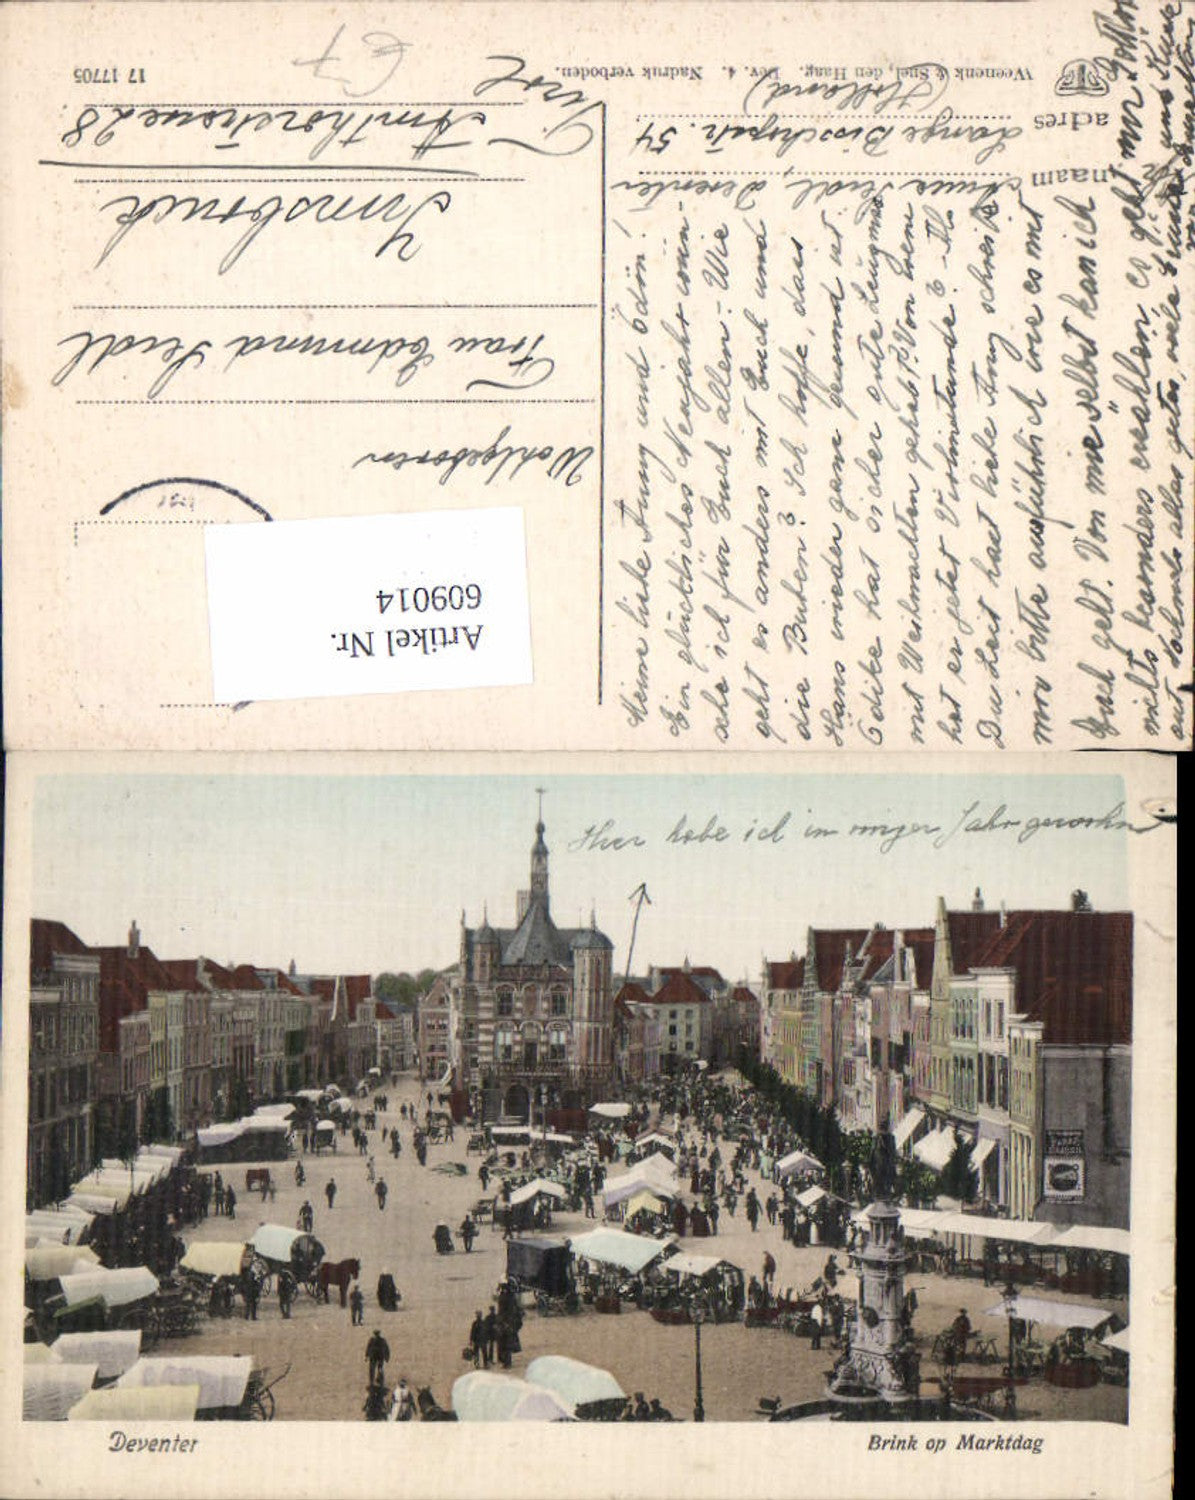 Meine liebe Anny und Ödön!
Ein glückliches Neujahr wün-
sche ich für Euch allen. - Wie
geht es anders mit Euch und
die Buben? Ich hoffe, dass
Hans wieder ganz gesund ist.
Ödike hat sicher gute Zeugniss
mit Weihnachten gehabt? Von wem
hat er jetzt Violinstunde? - Als
Du Zeit hast liebe Anny schreibe
mir bitte ausführlich wie es mit
Euch geht. Von mir selbst kan ich
nichts besonders erzählen, es geht mir Gottlob
gut
nochmals alles gutes, viele
naam Deventer
adres Lange Bisschopstr. 54
(Holland)
Weenenk & Snel, den Haag. Dev. 4. Nadruk verboden.
17 17705
Wohlgeboren
Frau Edmund Seidl
Innsbruck
Amthorstrasse 28
Tirol
€7
Artikel Nr.
609014
Hier habe ich im Jahr gewohnt
Deventer
Brink op Marktdag